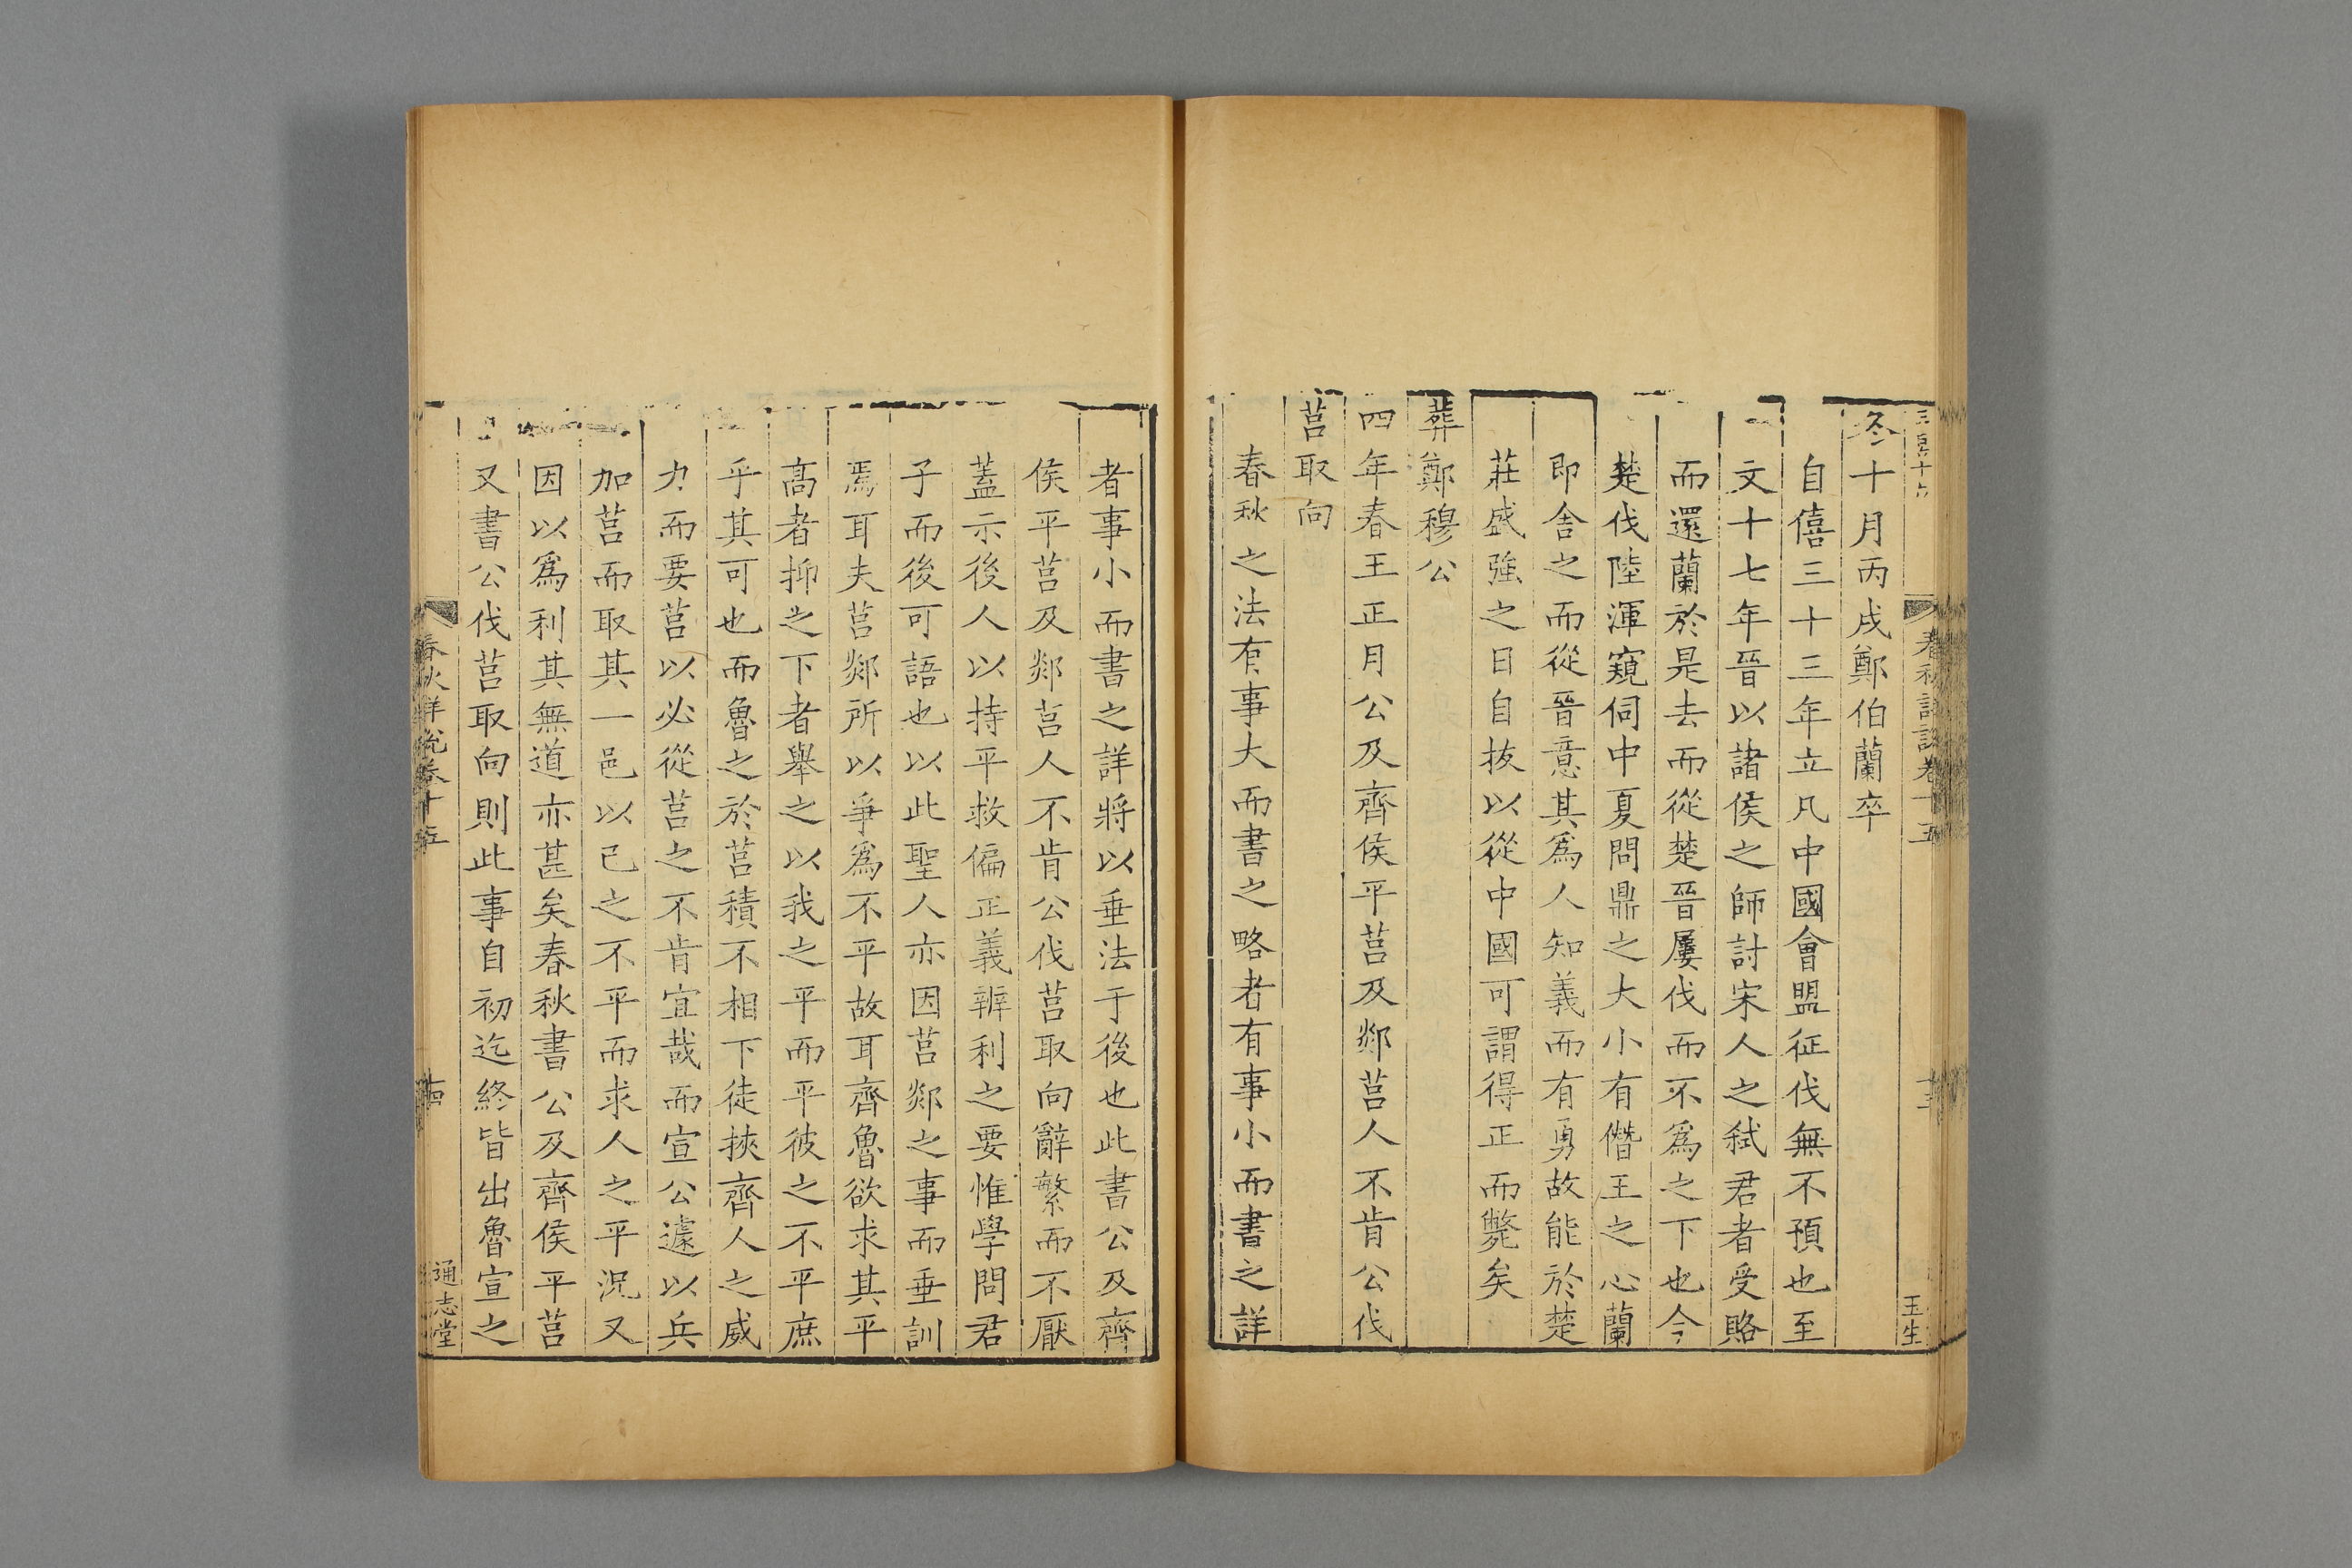 冬十月丙戌鄭伯蘭卒
自僖三十三年立凡中國會盟征伐無不預也至
文十七年晉以諸侯之師討宋人之弑君者受賂
而還蘭於是去而從楚晉屢伐而不爲之下也今
楚伐陸渾窺伺中夏問鼎之大小有僭王之心蘭
即舍之而從晉意其爲人知義而有勇故能於楚
莊盛強之日自抜以從中國可謂得正而斃矣
葬鄭穆公
四年春王正月公及齊侯平莒及郯莒人不肯公伐
莒取向
春秋之法有事大而書之略者有事小而書之詳
者事小而書之詳將以垂法于後也此書公及齊
侯平莒及郯莒人不肯公伐莒取向辭繁而不厭
蓋示後人以持平救偏正義辨利之要惟學問君
子而後可語也以此聖人亦因莒郯之事而垂訓
焉耳夫莒郯所以爭爲不平故耳齊魯欲求其平
高者抑之下者舉之以我之平而平彼之不平庶
乎其可也而魯之於莒積不相下徒挾齊人之威
力而要莒以必從莒之不肯宜哉而宣公遽以兵
加莒而取其一邑以己之不平而求人之平況又
因以爲利其無道亦甚矣春秋書公及齊侯平莒
又書公伐莒取向則此事自初迄終皆出魯宣之
春秋詳說卷十五
十四
通志堂